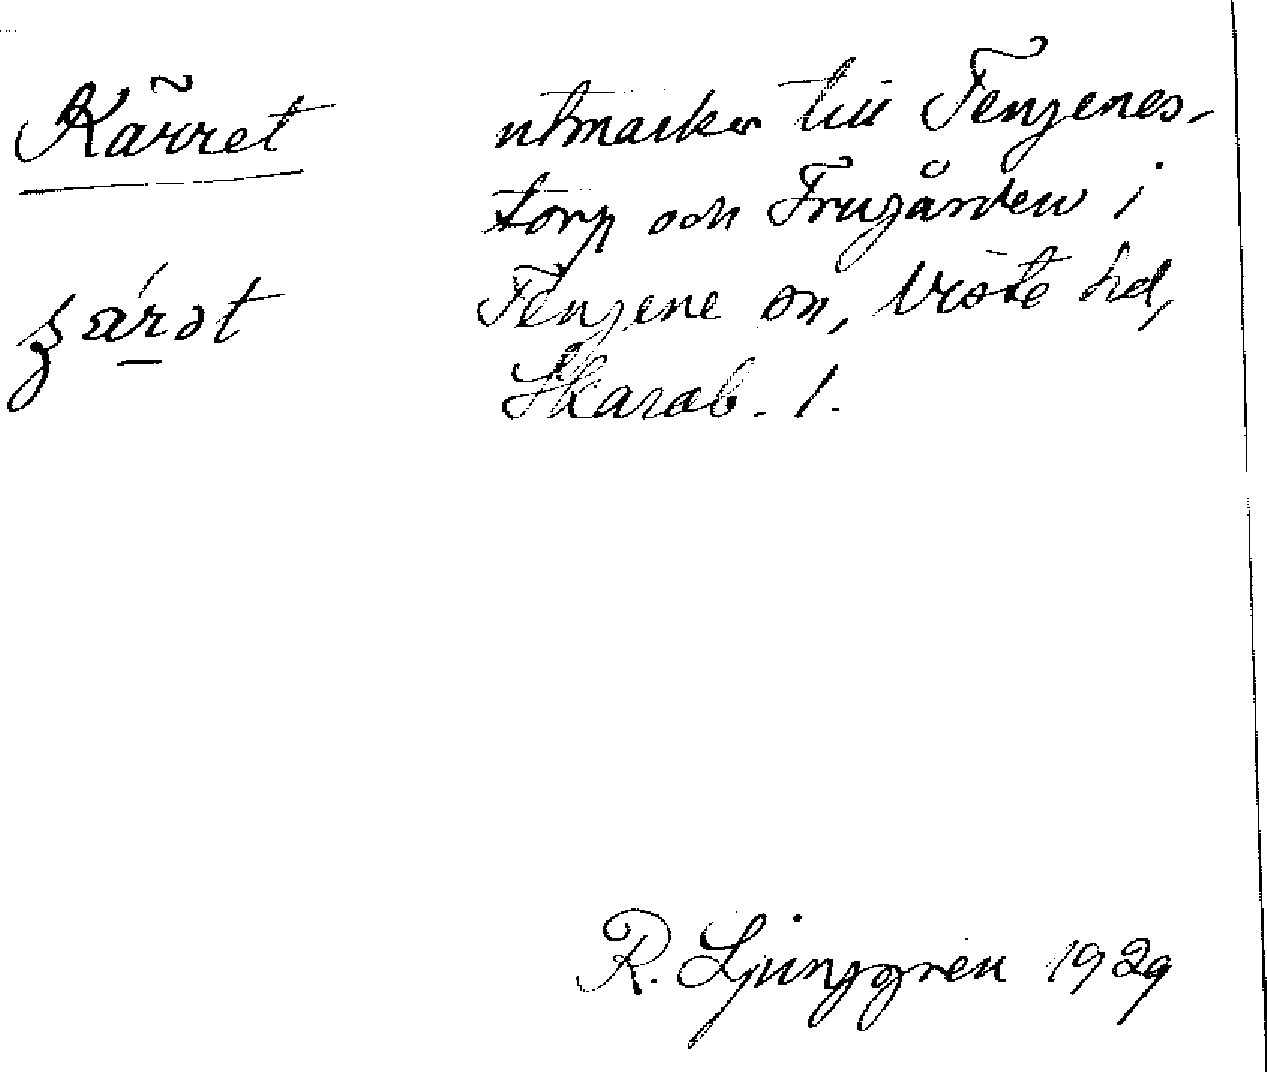 Kärret
utmarker till Fenjenes-
torp och Frugården i
Fenjene sn, Viste hd,
Skarab. l.
R. Ljunggren 1929